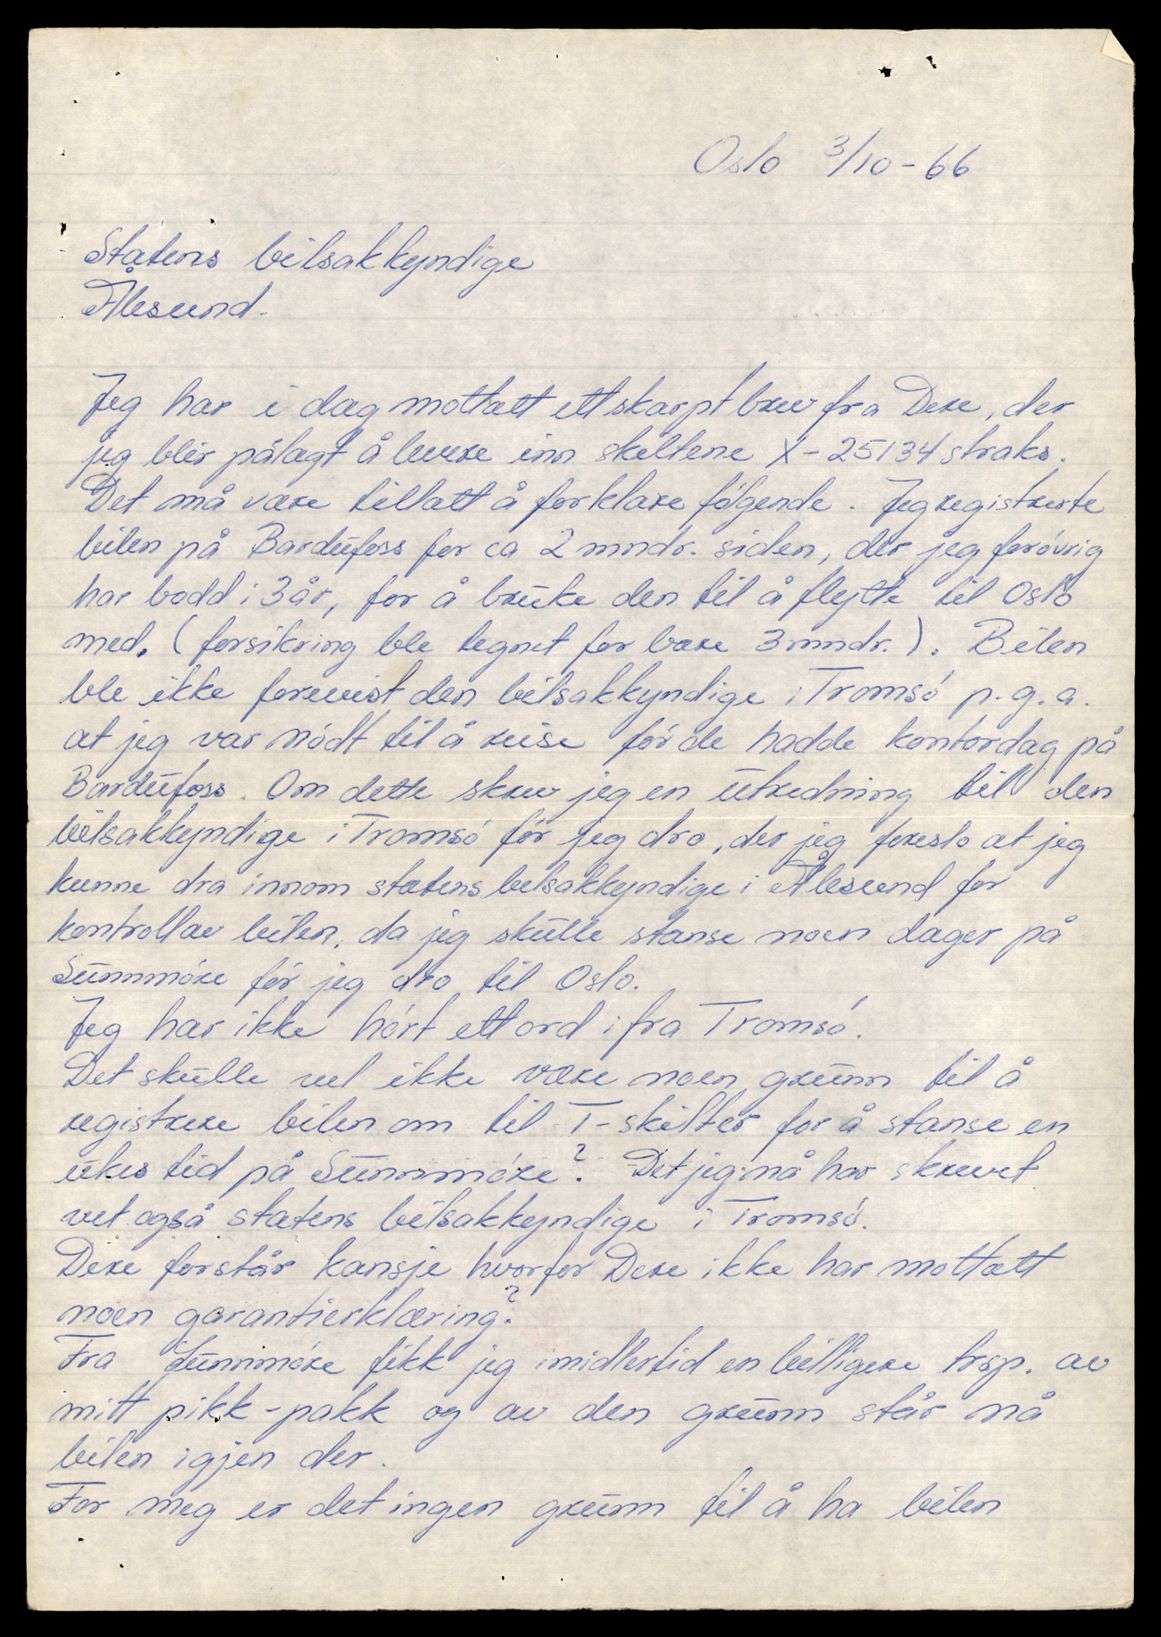 Oslo 3/10-66
Statens bilsakkyndige
Ålesund.
Jeg har i dag mottatt ett skarpt brev fra Dere, der
jeg blir pålagt å levere inn skiltene X-25134 straks.
Det må være tillatt å forklare følgende. Jeg registrerte
bilen på Bardufoss for ca 2 mndr. siden, der jeg forøvrig
har bodd i 3 år, for å bruke den til å flytte til Oslo
med. (forsikring ble tegnet for bare 3 mndr.). Bilen
ble ikke forevist den bilsakkyndige i Tromsø p.g.a.
at jeg var nødt til å reise før de hadde kontordag på
Bardufoss. Om dette skrev jeg en utredning til den
bilsakkyndige i Tromsø før jeg dro, der jeg foreslo at jeg
kunne dra innom statens bilsakkyndige i Ålesund for
kontroll av bilen, da jeg skulle stanse noen dager på
Sunnmøre før jeg dro til Oslo.
Jeg har ikke hørt ett ord ifra Tromsø.
Det skulle vel ikke være noen grunn til å
registrere bilen om til T-skilter for å stanse en
ukes tid på Sunnmøre? Det jeg nå har skrevet
vet også statens bilsakkyndige i Tromsø.
Dere forstår kansje hvorfor Dere ikke har mottatt
noen garantierklæring?
Fra Sunnmøre fikk jeg imidlertid en billigere trsp. av
mitt pikk-pakk og av den grunn står nå
bilen igjen der.
For meg er det ingen grunn til å ha bilen